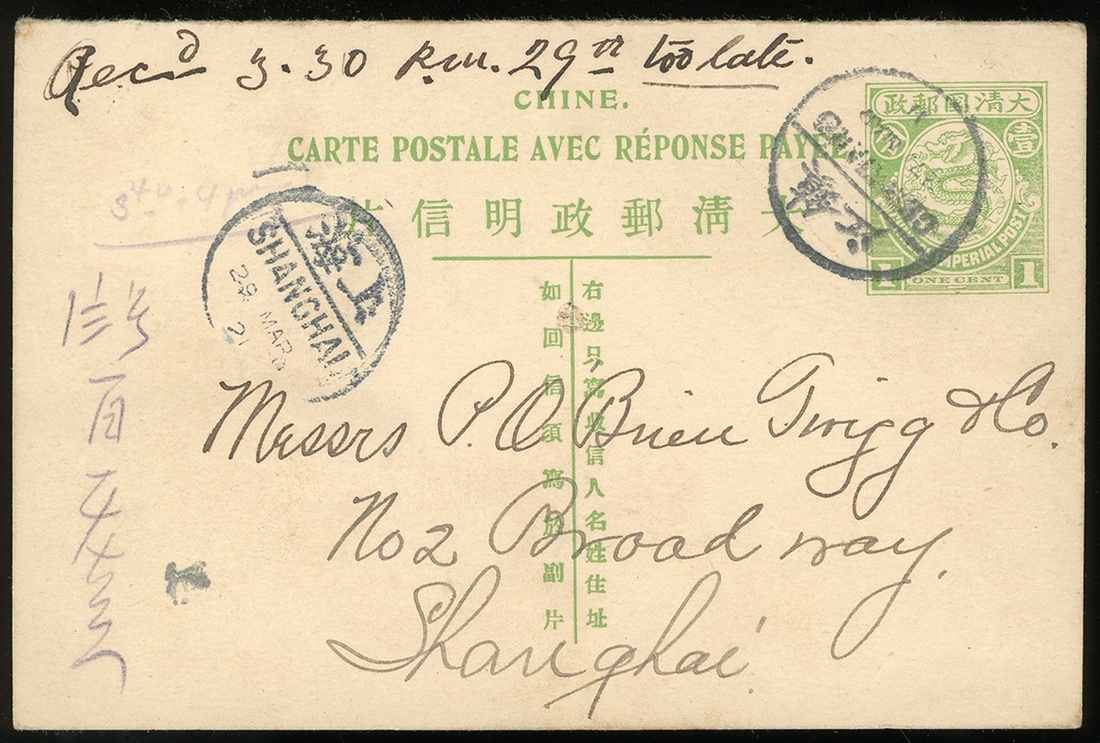 Rec'd 3.30 P.M. 29th too late.
CHINE.
CARTE POSTALE AVEC RÉPONSE PAYÉE
大清郵政明信片
大清國郵政
壹
IMPERIAL POST
1 ONE CENT 1
上海
SHANGHAI
29 MAR
21
右邊只寫收信人名姓住址
如回信須寫於副片
Messrs P. O Brien Twigg & Co.
No 2 Broadway.
Shanghai